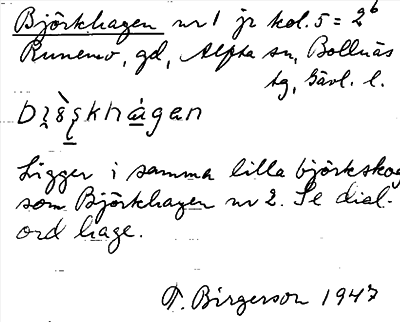 Björkhagen nr 1 jr kol. 5 = 2b
Runemo, gd, Alfta sn, Bollnäs
tg, Gävl. l.
Ligger i samma lilla björkskog
som Björkhagen nr 2. Se dial.
ord hage.
T. Birgerson 1947